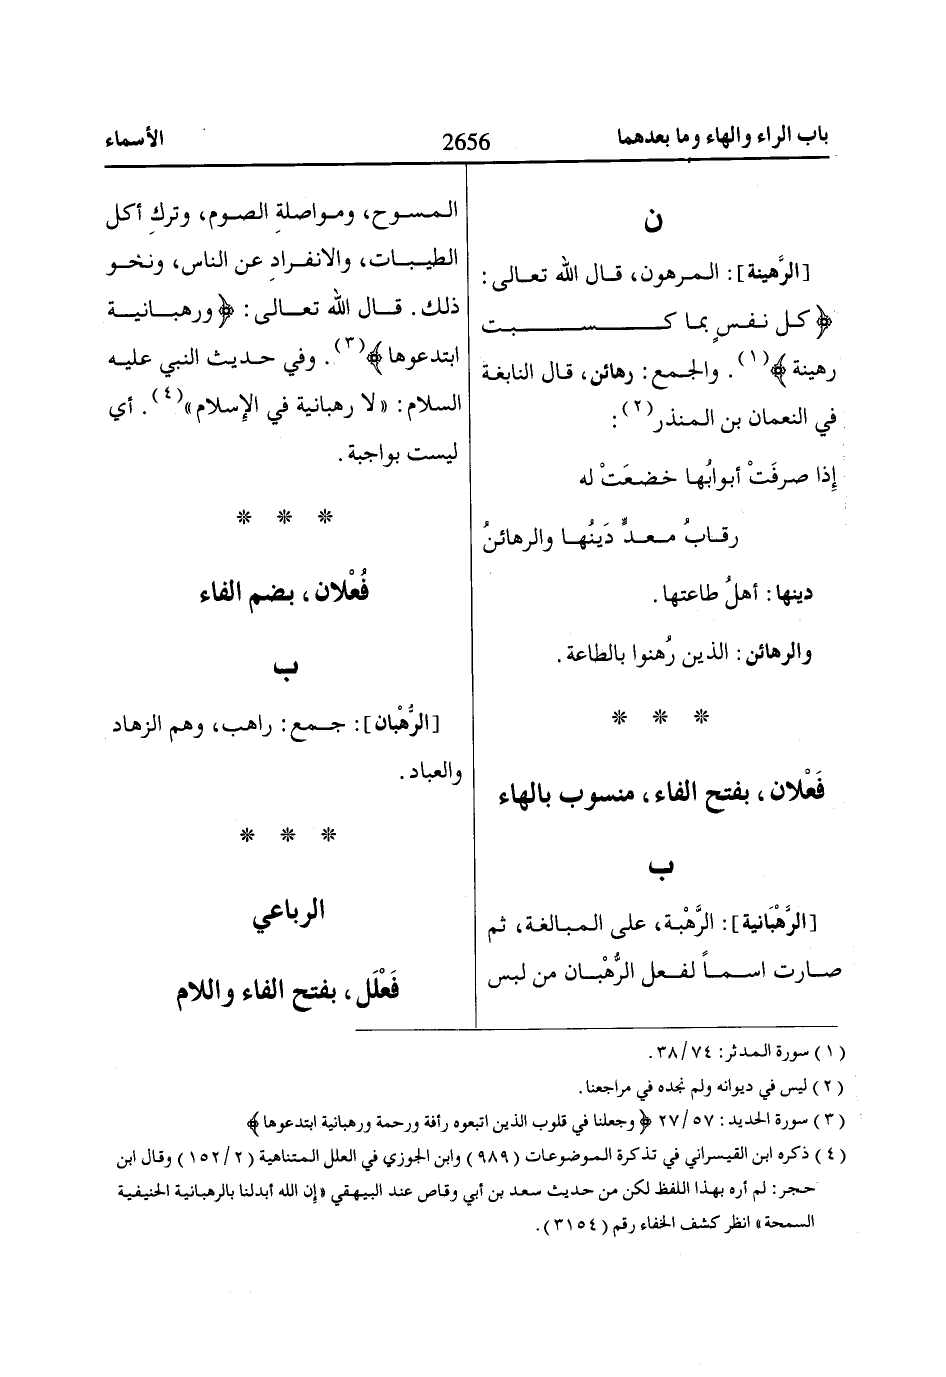 باب الراء والهاء وما بعدهما
2656
الأسماء
ن
[الرَّهينة]: المرهون، قال الله تعالى:
﴿كل نفسٍ بما كسبت
رهينة﴾(١). والجمع: رهائن، قال النابغة
في النعمان بن المنذر(٢):
إذا صرفَتْ أبوابُها خضعَتْ له
رقابُ معدٍّ دَينُها والرهائنُ
دينها: أهلُ طاعتها.
والرهائن: الذين رُهنوا بالطاعة.
* * *
فَعْلان، بفتح الفاء، منسوب بالهاء
ب
[الرَّهْبَانية]: الرَّهْبة، على المبالغة، ثم
صارت اسماً لفعل الرُّهْبان من لبس
المسوح، ومواصلةِ الصوم، وتركِ أكل
الطيبات، والانفرادِ عن الناس، ونحو
ذلك. قال الله تعالى: ﴿ورهبانية
ابتدعوها﴾(٣). وفي حديث النبي عليه
السلام: «لا رهبانية في الإسلام»(٤). أي
ليست بواجبة.
* * *
فُعْلان، بضم الفاء
ب
[الرُّهْبان]: جمع: راهب، وهم الزهاد
والعباد.
* * *
الرباعي
فَعْلَل، بفتح الفاء واللام
(١) سورة المدثر: ٣٨/٧٤.
(٢) ليس في ديوانه ولم نجده في مراجعنا.
(٣) سورة الحديد: ٢٧/٥٧ ﴿وجعلنا في قلوب الذين اتبعوه رأفة ورحمة ورهبانية ابتدعوها﴾
(٤) ذكره ابن القيسراني في تذكرة الموضوعات (٩٨٩) وابن الجوزي في العلل المتناهية (١٥٢/٢) وقال ابن
حجر: لم أره بهذا اللفظ لكن من حديث سعد بن أبي وقاص عند البيهقي «إن الله أبدلنا بالرهبانية الحنيفية
السمحة» انظر كشف الخفاء رقم (٣١٥٤).